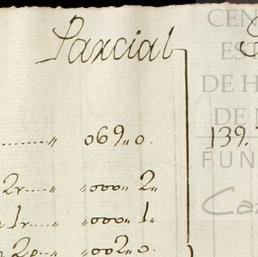 Parcial
069 " 0.
2r " " 000 " 2.
1r " " 000 " 1.
2p " " 002 " 0
139.
CEN
ES
DE H
DE
FUN
Ca